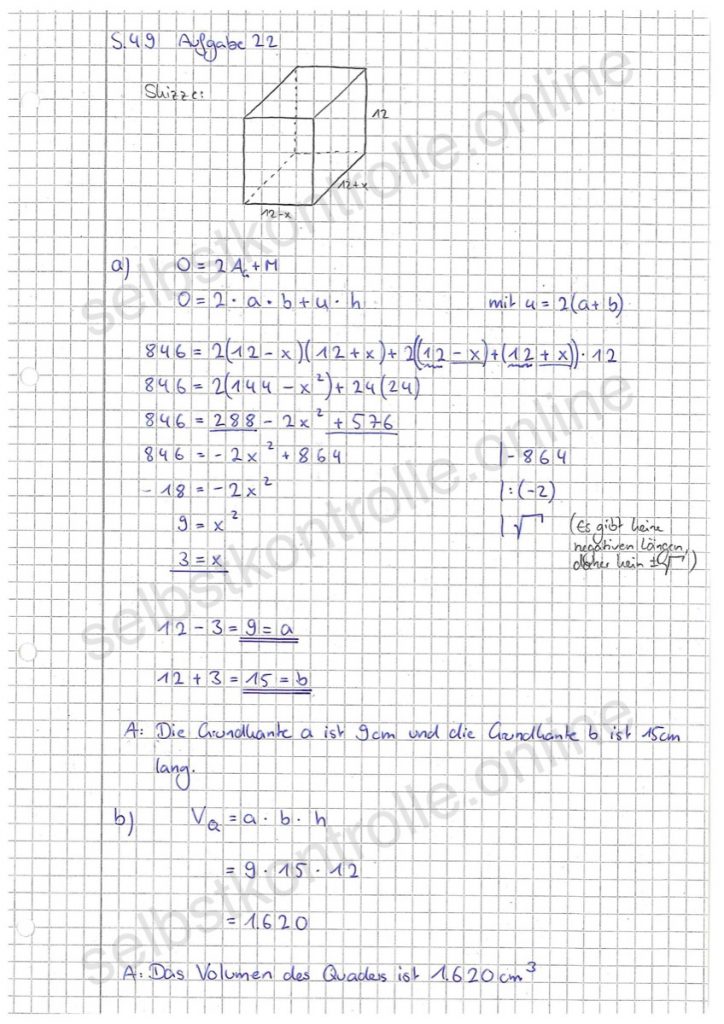 S.49 Aufgabe 22
Skizze:
12
12+x
12-x
a) O = 2A_G + M
O = 2 · a · b + u · h mit u = 2(a+b)
846 = 2(12 - x)(12 + x) + 2((12 - x) + (12 + x)) · 12
846 = 2(144 - x²) + 24(24)
846 = 288 - 2x² + 576
846 = -2x² + 864 |- 864
- 18 = -2x² |:(-2)
9 = x² |√ (Es gibt keine
negativen Längen,
daher kein ±√ )
3 = x
12 - 3 = 9 = a
12 + 3 = 15 = b
A: Die Grundkante a ist 9cm und die Grundkante b ist 15cm
lang.
b) V_Q = a · b · h
= 9 · 15 · 12
= 1.620
A: Das Volumen des Quaders ist 1.620 cm³
selbstkontrolle.online
selbstkontrolle.online
selbstkontrolle.online